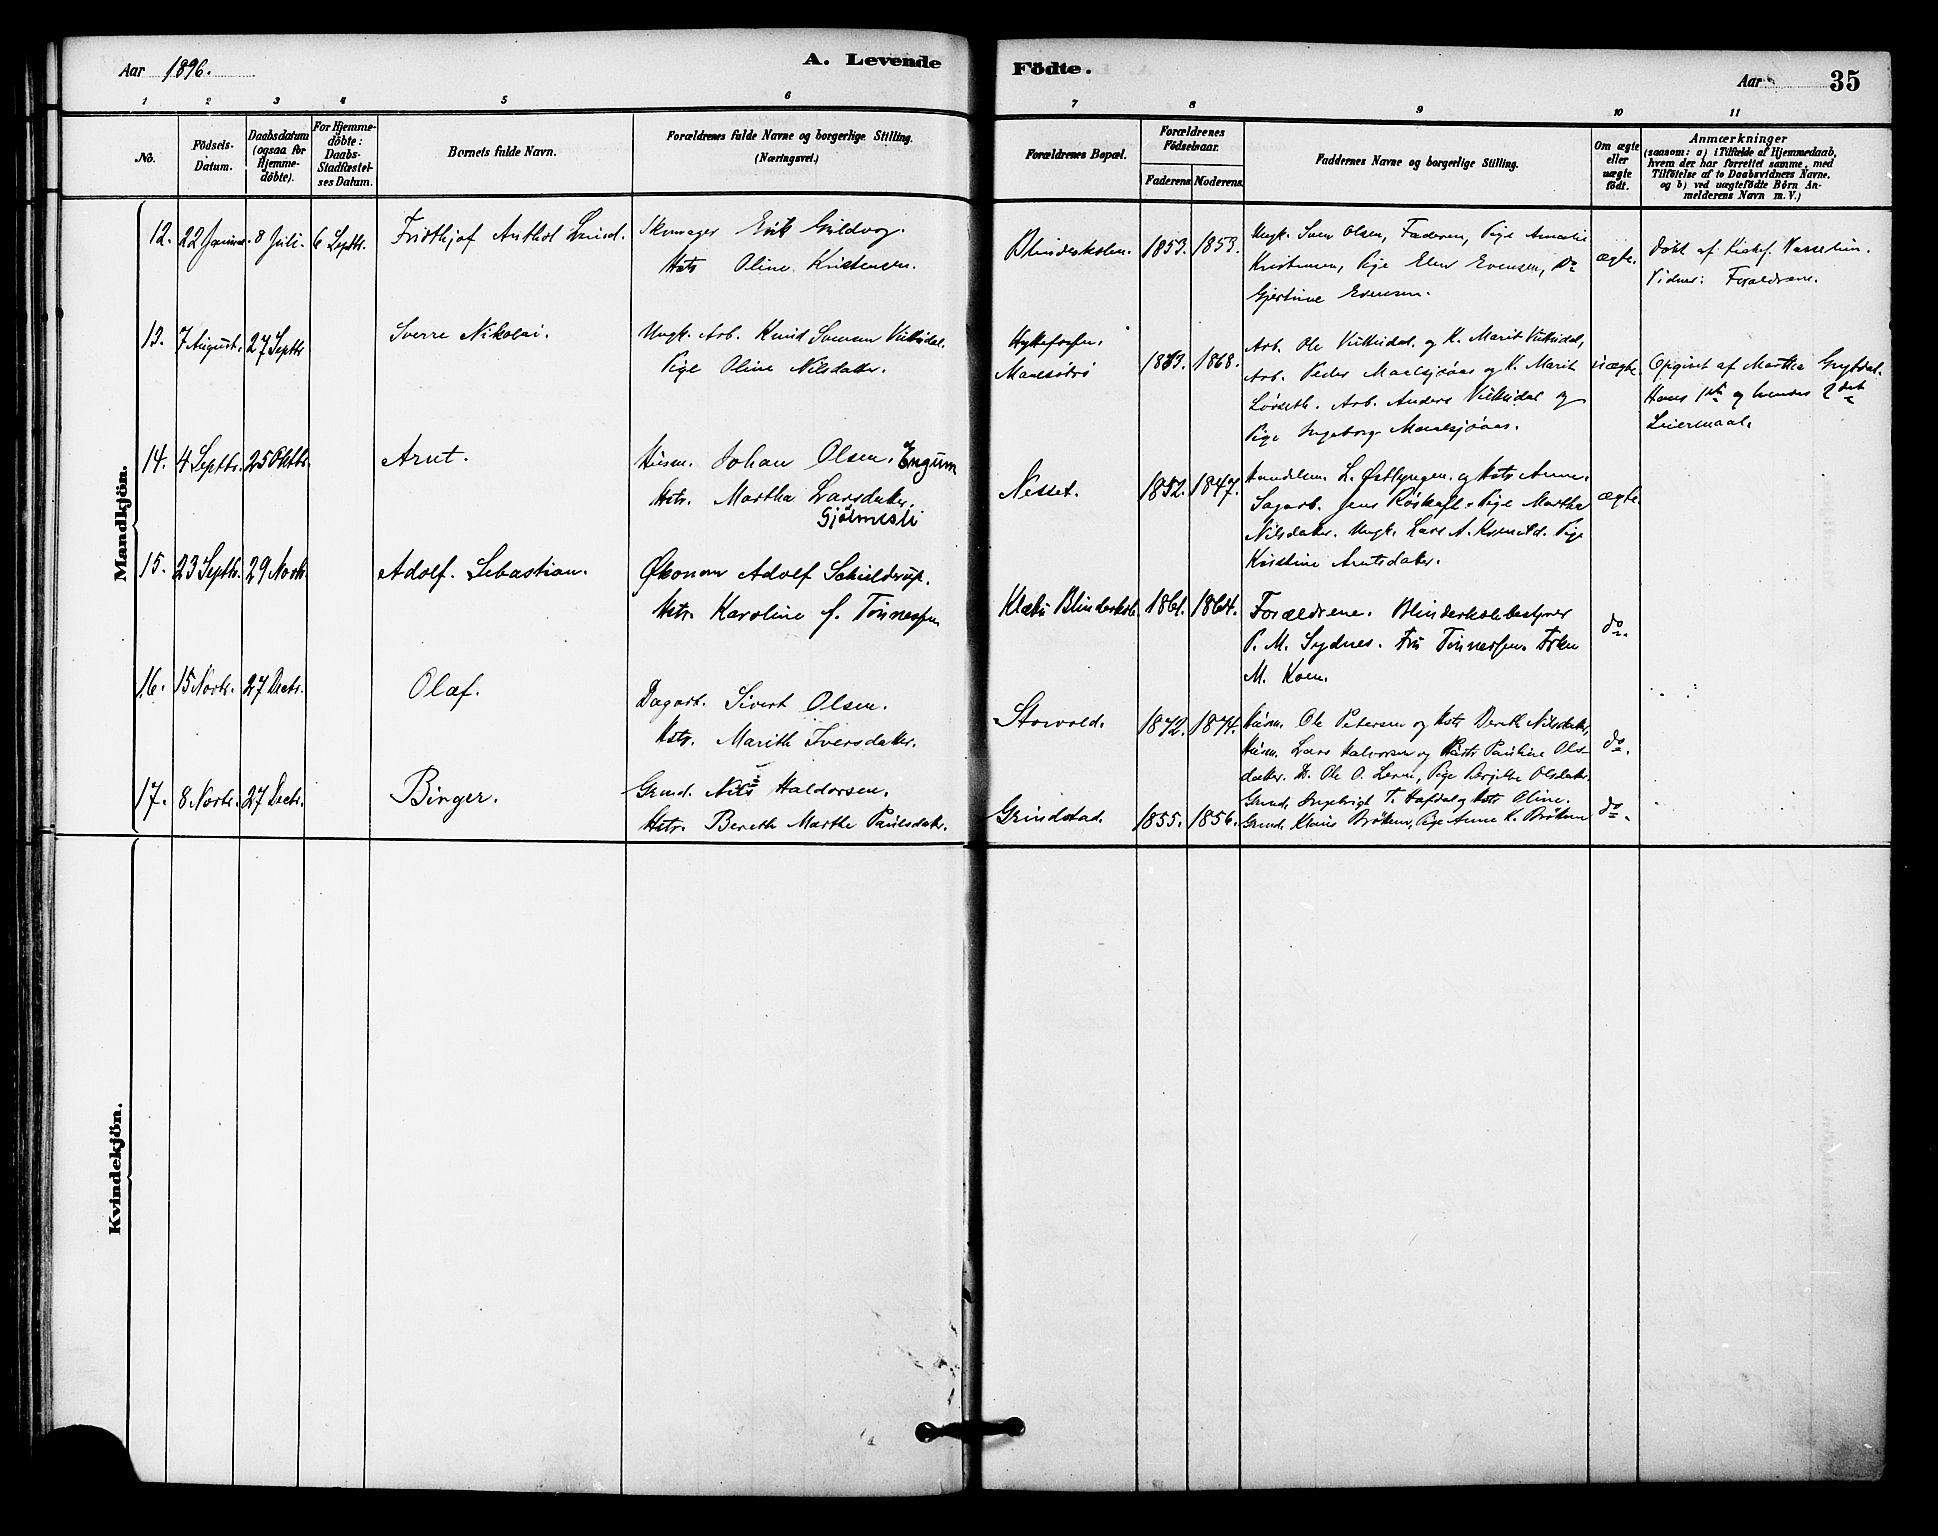 Aar 1896.
A. Levende
Födte.
Aar
35
1 2 3 4 5 6 7 8 9 10 11
No.
Födsels-
Datum.
Daabsdatum
(ogsaa for
Hjemme-
döbte).
For Hjemme-
döbte:
Daabs-
Stadfæstel-
ses Datum.
Barnets fulde Navn.
Forældrenes fulde Navne og borgerlige Stilling.
(Næringsvei.)
Forældrenes Bopæl.
Forældrenes
Födselsaar.
Faderens. Moderens.
Faddernes Navne og borgerlige Stilling.
Om ægte
eller
uægte
födt.
Anmærkninger
(saasom: a) i Tilfælde af Hjemmedaab,
hvem der har forrettet samme, med
Tilföielse af to Daabsvidners Navne,
og b) ved uægtefödte Börn An-
melderens Navn m. V.)
Mandkjön.
12. 22 Januar. 8 Juli. 6 Septbr. Fridthjof Anthol Lund.
Skomager Erik Guldvog.
Hstr Oline Kristensen.
Blindeskolen. 1853. 1853.
Ungk. Sven Olsen, Faderen, Pige Amalie
Kristensen, Pige Elen Evensen, Do
Gjertine Evensen.
ægte.
Døbt af Kirkes. Vasselien.
Vidner: Forældrene.
13. 7 August. 27 Septbr Sverre Nikolai.
Ungk. Arb. Knud Svensen Vuttudal.
Pige Oline Nilsdatter.
Hyttefossen.
Maelsobrø
1863. 1868.
Arb. Ole Vuttudal. og K. Marit Vuttudal,
Arb. Peder Maelsjøaas og K. Marit
Løvseth. Arb. Anders Vuttudal og
Pige Ingeborg Maelsjøaas.
uægte.
Opgivet af Martha Grytdal.
Hans 1ste og hendes 2det
Leiermaal.
14. 4 Septbr. 25 Oktbr. Arnt.
Husm. Johan Olsen. Engum
Hstr. Martha Larsdatter.
Gjølmesli
Nesset. 1852. 1847.
Handelsm. L. Østlyngen. og Hstr Anne.
Sagarb. Jens Røskaft. Pige Martha
Nilsdatter. Ungk. Lars A. Kvenild. Pige
Kristine Arntsdatter.
ægte.
15. 23 Septbr. 29 Novbr. Adolf. Sebastian.
Økonom Adolf Schieldrup.
Hstr. Karoline f. Tønnessen
Klæbu Blindeskole. 1861. 1864.
Forældrene. Blindeskolebestyrer
P. M. Sydnes. Fru Tønnessen. Frken
M. Koen.
do.
16. 15 Novbr. 27 Decbr. Olaf.
Dagarb. Sivert Olsen.
Hstr. Marith Iversdatter.
Storvold. 1872. 1874.
Husm. Ole Petersen og Hstr Bereth Nilsdatter,
Husm. Lars Halvorsen og Hustr Pauline Ols-
datter. D. Ole O. Lerm, Pige Bergitte Olsdatter.
do.
17. 8 Novbr. 27 Decbr. Birger.
Grmd. Nils Haldorsen.
Hstr. Bereth Marthe Paulsdatter.
Grindstad. 1855. 1856.
Grmd. Ingebrigt T. Hafdal og Hstr Oline.
Grmd. Klaus Bröttem, Pige Anne K. Bröttem
do.
Kvindekjön.